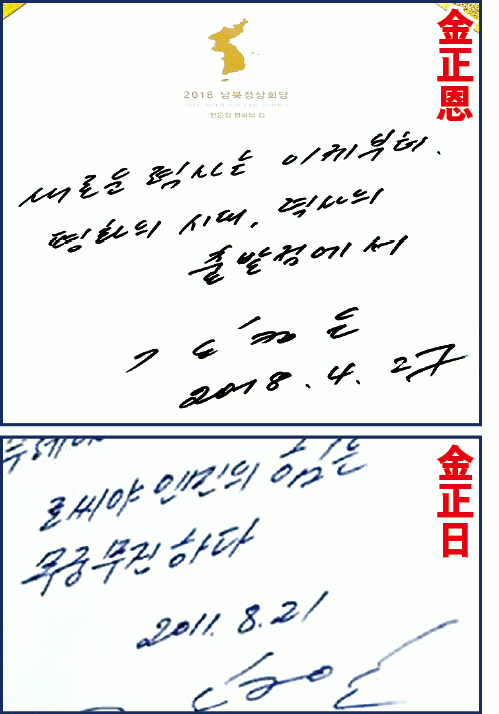 金正恩
2018 남북정상회담
판문점 평화의 집
새로운 력사는 이제부터.
평화의 시대, 력사의
출발점에서
김정은
2018. 4. 27
金正日
로씨야 엔진의 힘은
무궁무진하다
2011. 8. 21